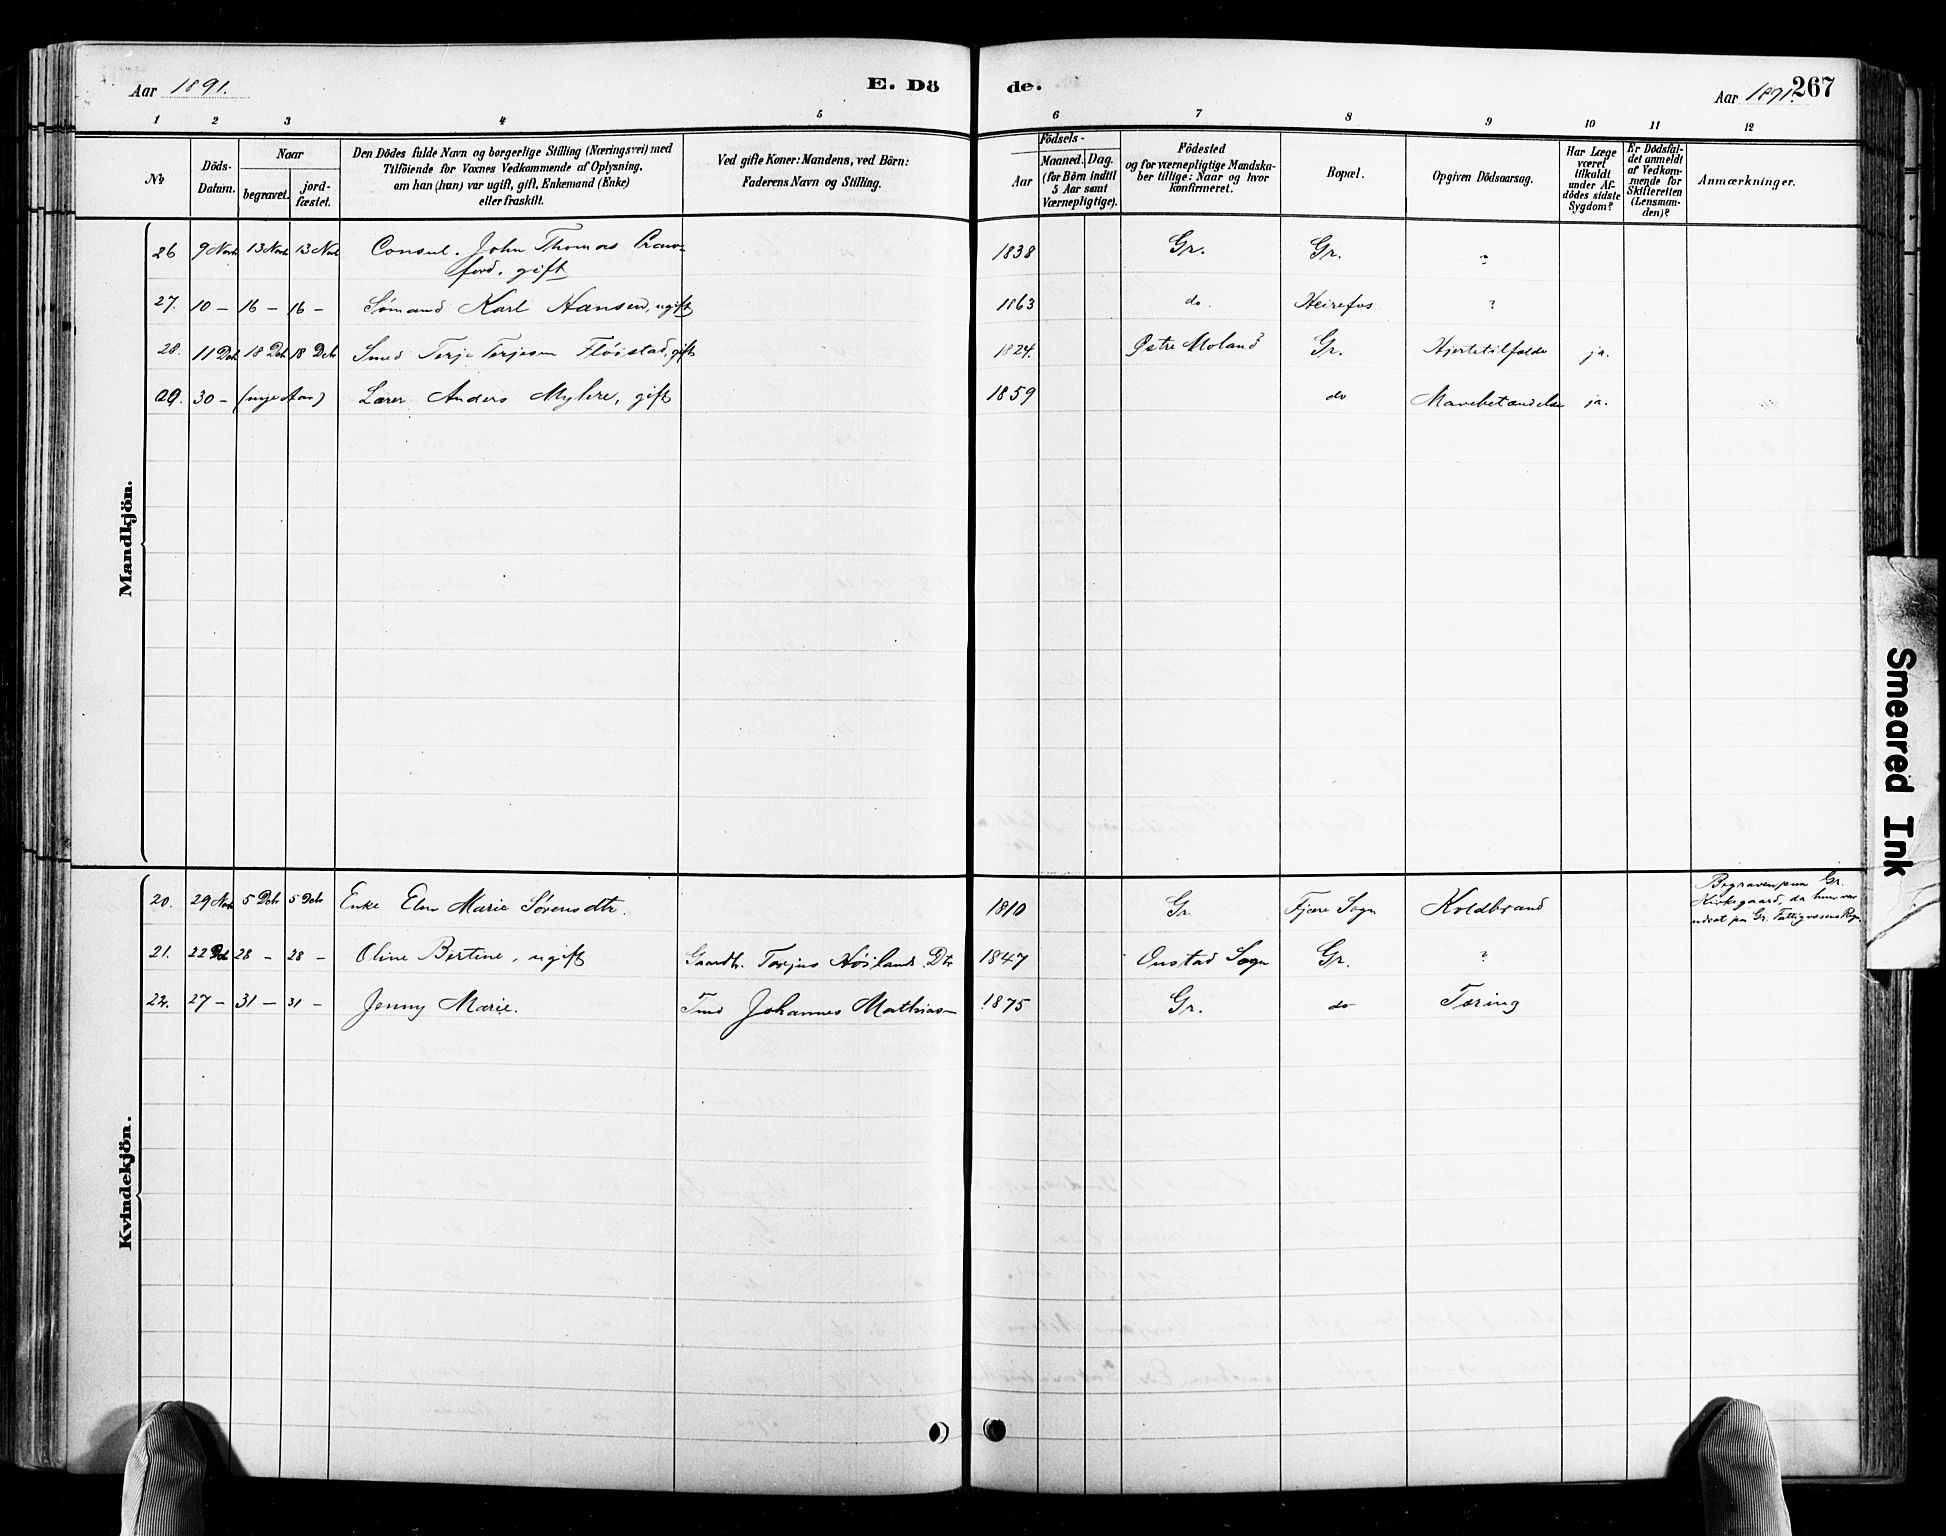 Aar 1891.
E. Dö
de.
Aar 1891.
267
1 2 3 4 5
6 7 8 9 10 11 12
No
Döds-
Datum.
Naar
begravet.
jord-
fæstet.
Den Dödes fulde Navn og borgerlige Stilling (Næringsvei) med
Tilföiende for Voxnes Vedkommende af Oplysning,
om han (hun) var ugift, gift, Enkemand (Enke)
eller fraskilt.
Ved gifte Koner: Mandens, ved Börn:
Faderens Navn og Stilling.
Födsels-
Aar
Maaned. Dag.
(for Börn indtil
5 Aar samt
Værnepligtige).
Födested
og for værnepligtige Mandska-
ber tillige: Naar og hvor
konfirmeret.
Bopæl.
Opgiven Dödsaarsag.
Har Læge
været
tilkaldt
under Af-
dödes sidste
Sygdom?
Er Dödsfal-
det anmeldt
af Vedkom-
mende for
Skifteretten
(Lensman-
den)?
Anmærkninger.
Mandkjön.
26 9 Novb 13 Novb 13 Novb Consul. John Thomas Craw-
ford, gift 1838 Gr. Gr. ?
27. 10 – 16 – 16 – Sømand Karl Hansen, ugift 1863 do. Heirefos ?
28. 11 Deb 18 Deb 18 Deb Smed Terje Terjesen Fløistad, gift 1824. Østre Moland Gr. Hjertetilfælde ja.
29. 30 – (nye Aar) Lærer Anders Myhre, gift 1859 do Mavebetændelse ja.
Kvindekjön.
20. 29 Novb 5 Debr 5 Debr Enke Elen Marie Sørensdtr. 1810 Gr. Fjære Sogn Koldbrand
Begraven paa Gr.
Kirkegaard, da hun var
udsat paa Gr. Fattigvæsens Regn.
21. 22 Deb 28 – 28 – Oline Bertine, ugift Gaardbr. Terjus Høilands Dtr 1847 Onstad Sogn Gr. ?
22. 27 – 31 – 31 – Jenny Marie. Johannes Mathias– 1875 Gr. do Tæring
Smeared Ink